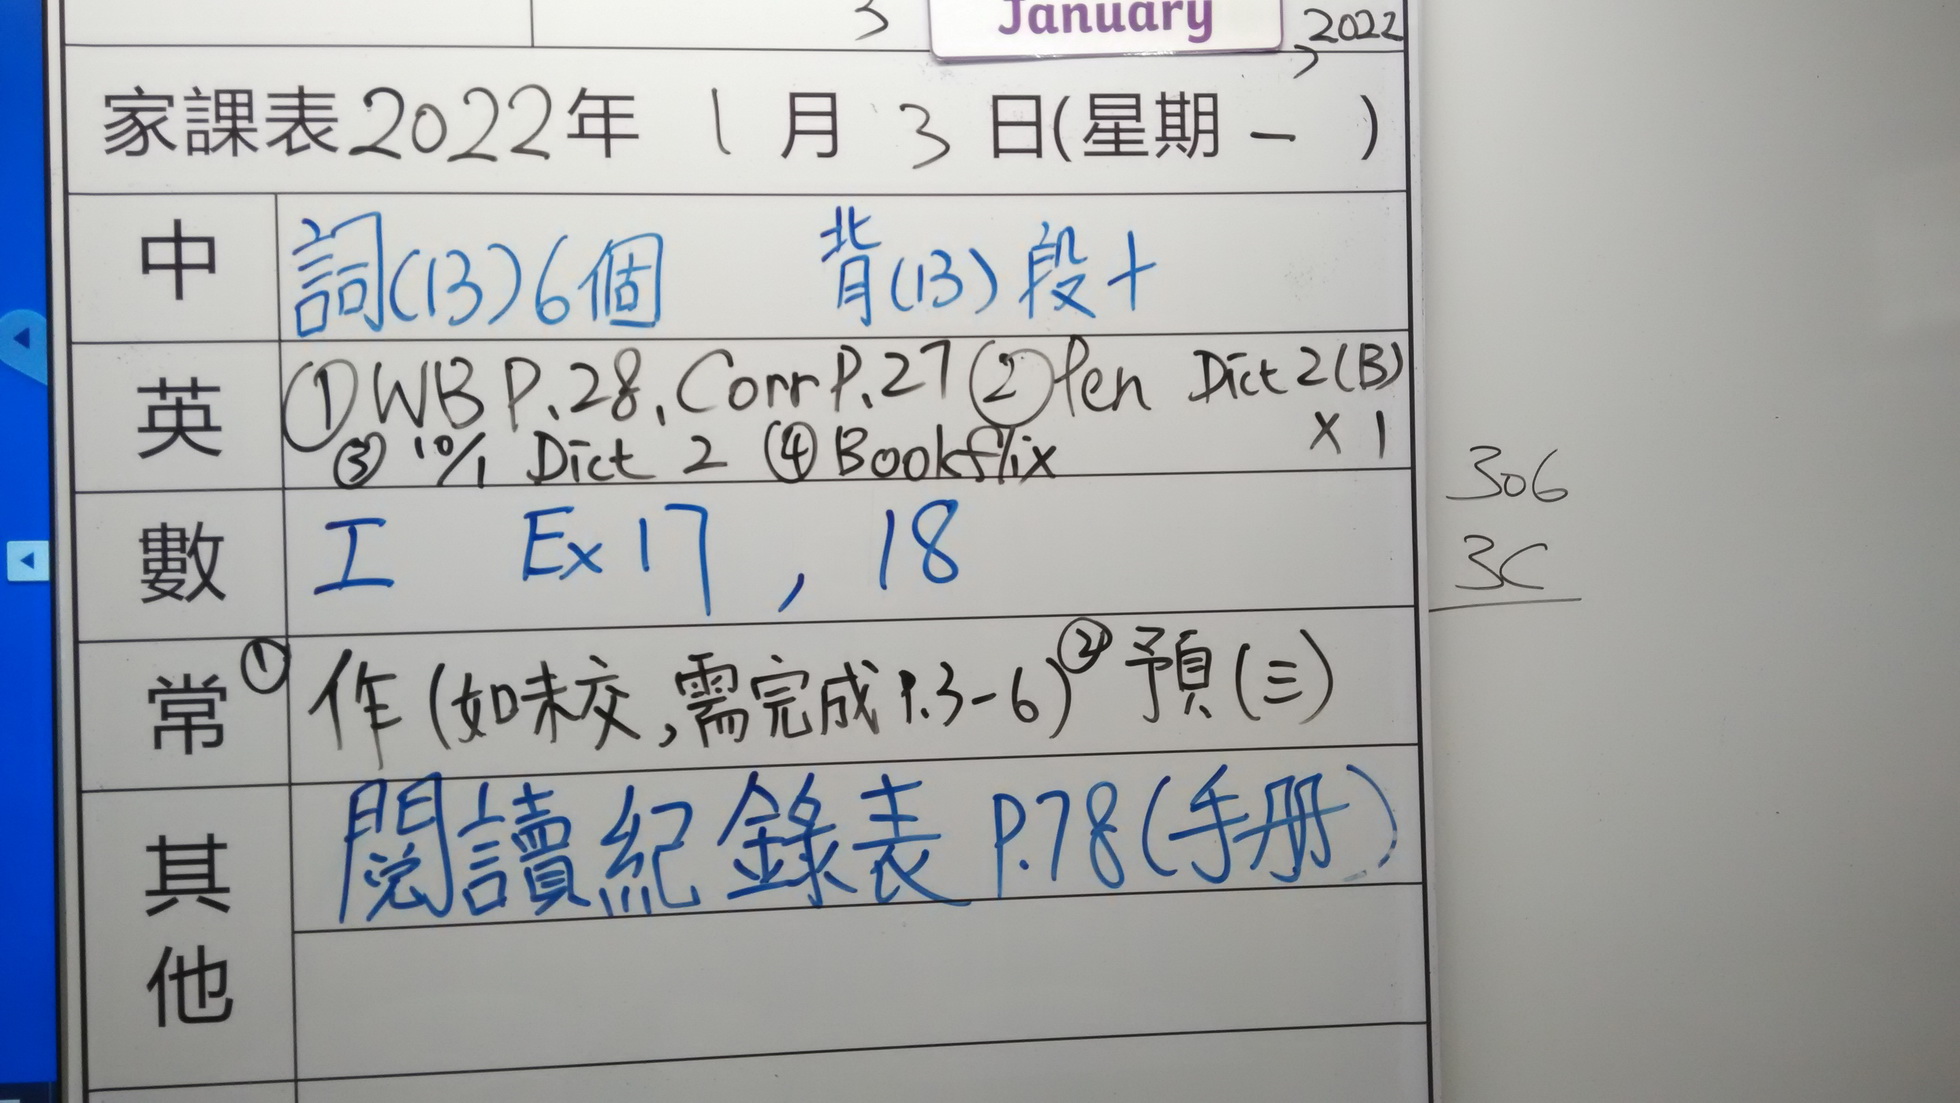 3 January, 2022
家課表2022年 1月 3日(星期一 )
中 詞(13)6個 背(13)段十
英 ①WB P.28, Corr P.27 ②Pen Dict 2(B) x 1
③ 10/1 Dict 2 ④ Bookflix
數 工 Ex 17, 18
常 ①作(如未交,需完成P.3-6) ②預(三)
其他 閱讀紀錄表 P.78(手冊)
306
3C